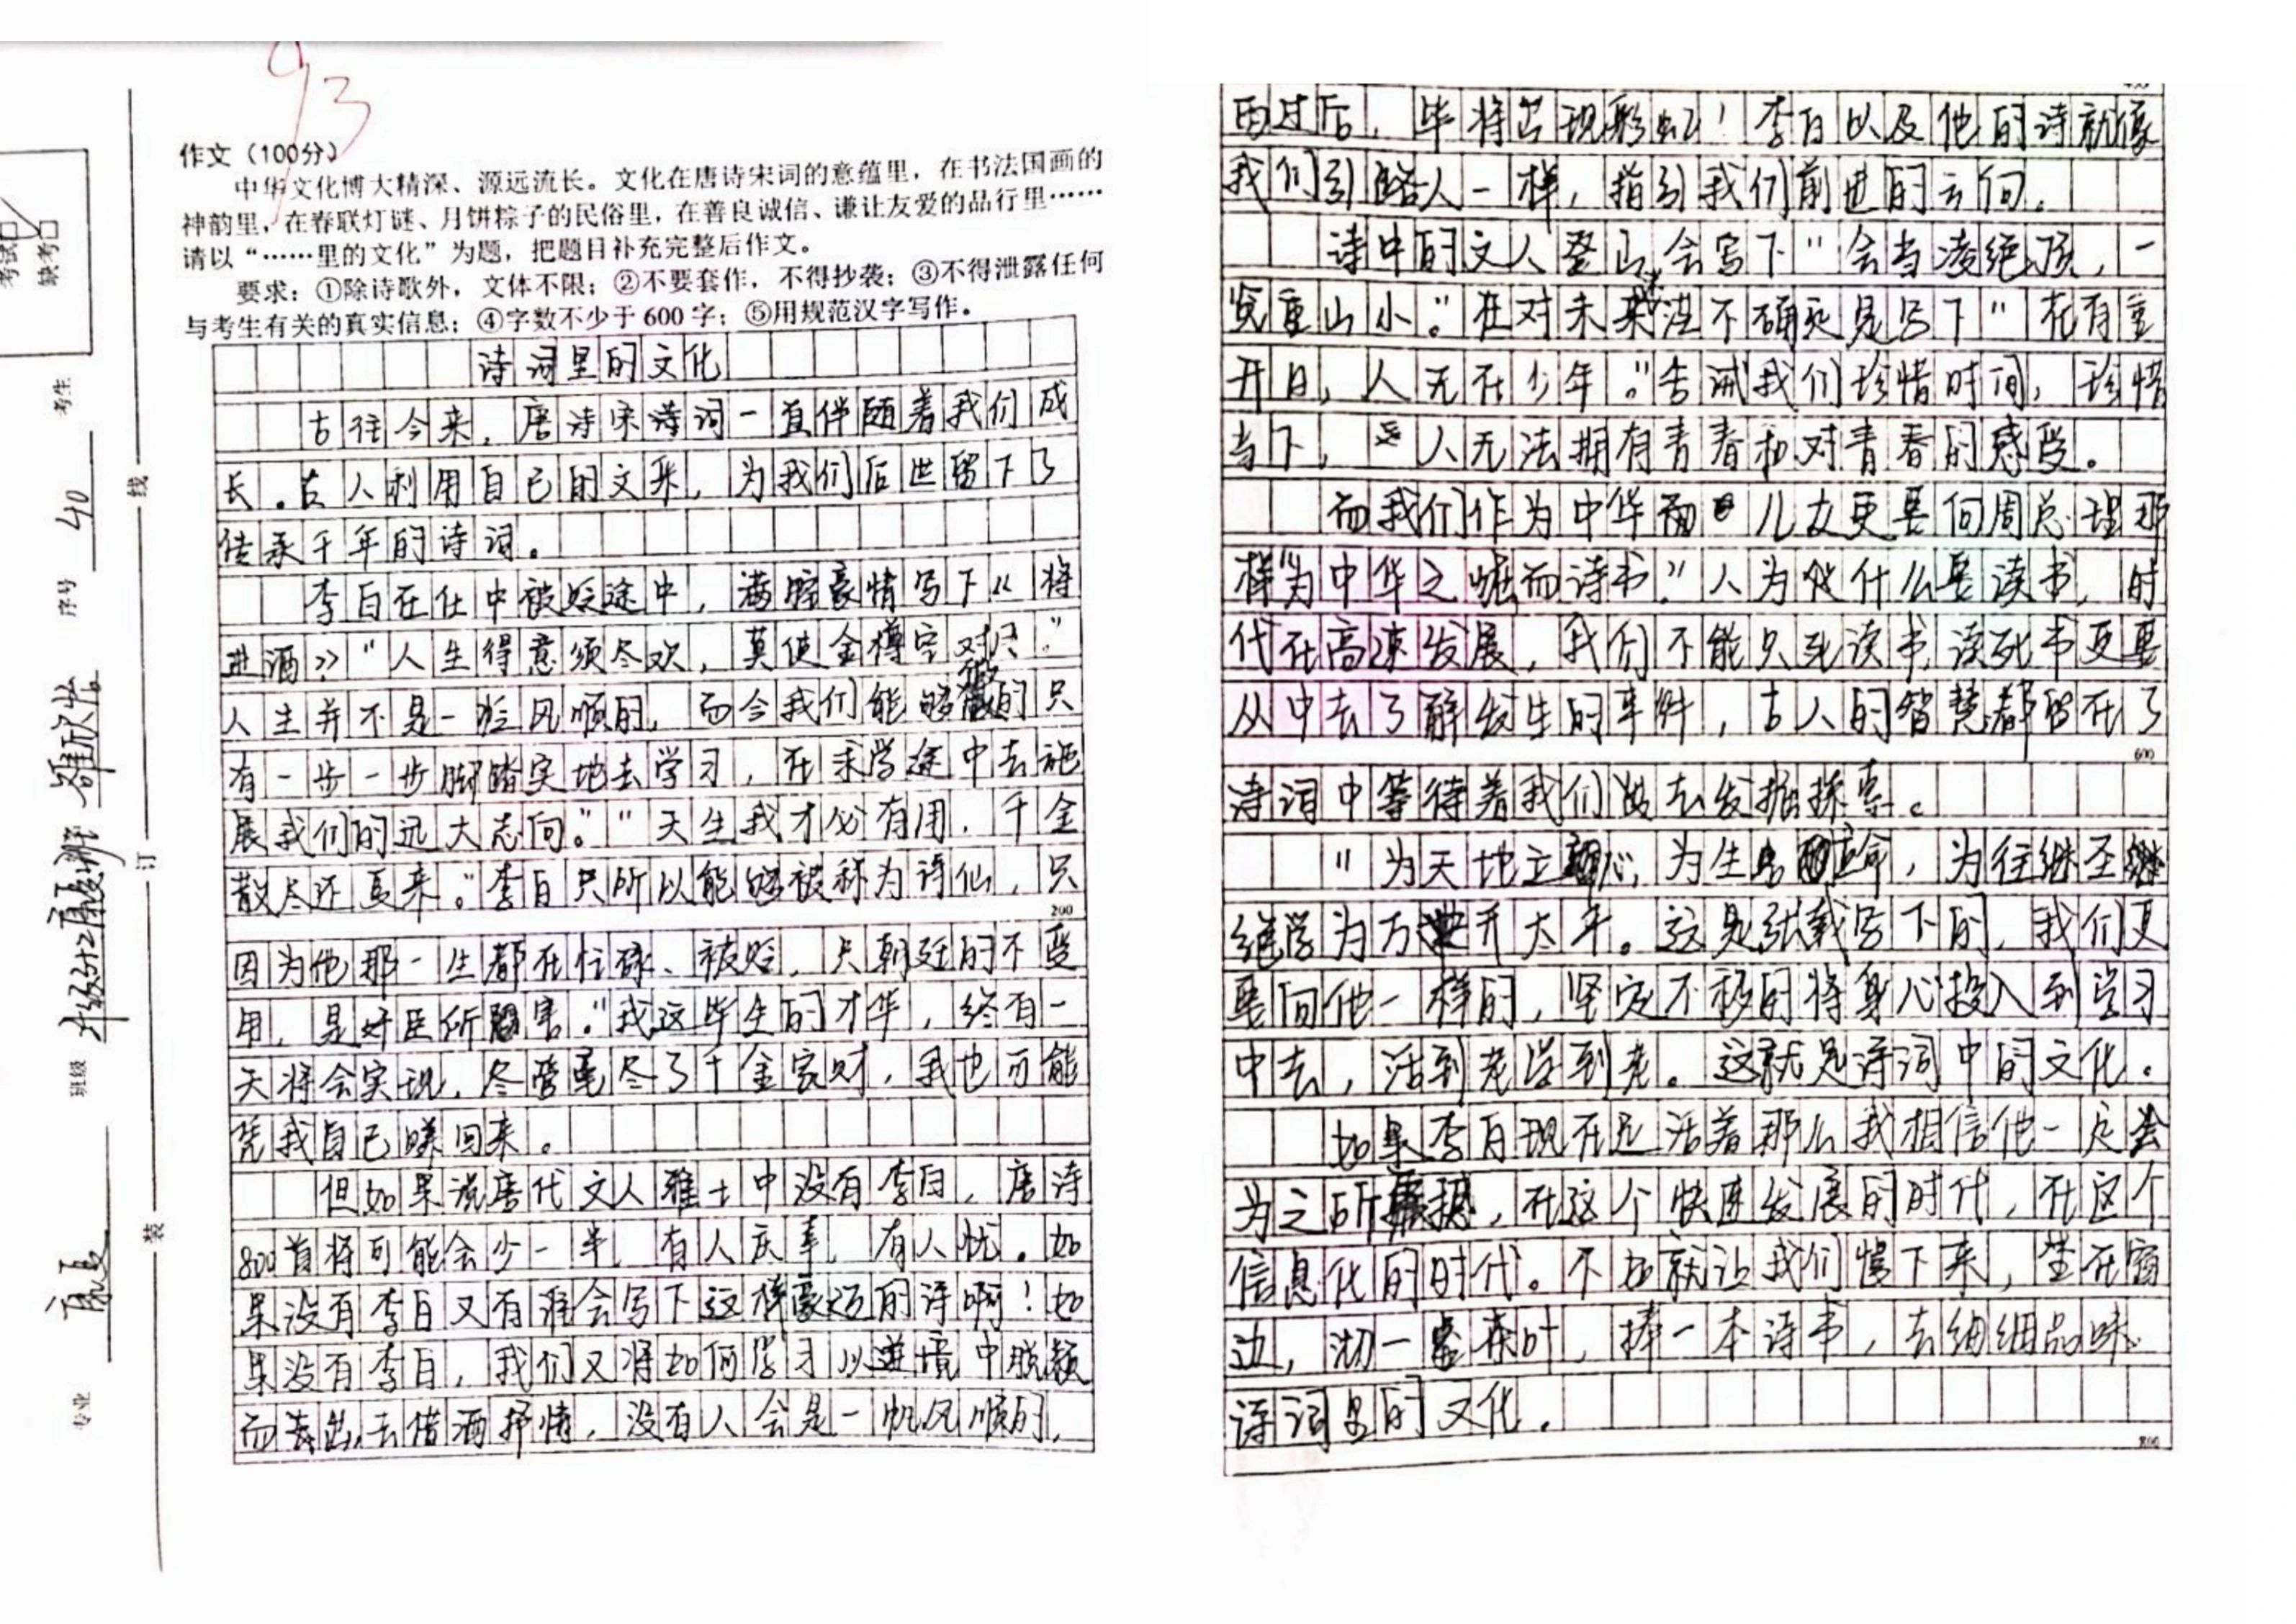 93
作文（100分）
中华文化博大精深、源远流长。文化在唐诗宋词的意蕴里，在书法国画的
神韵里，在春联灯谜、月饼粽子的民俗里，在善良诚信、谦让友爱的品行里……
请以“……里的文化”为题，把题目补充完整后作文。
要求：①除诗歌外，文体不限；②不要套作，不得抄袭；③不得泄露任何
与考生有关的真实信息；④字数不少于600字；⑤用规范汉字写作。
诗词里的文化
古往今来，唐诗宋诗词一直伴随着我们成
长。古人利用自己的文采，为我们后世留下了
传承千年的诗词。
李白在仕中被贬途中，满腔豪情写下《将
进酒》“人生得意须尽欢，莫使金樽空对月。”
人生并不是一帆风顺的，而今我们能够做的只
有一步一步脚踏实地去学习，在求学途中去施
展我们的远大志向。”“天生我才必有用，千金
散尽还复来。”李白只所以能够被称为诗仙，只
200
因为他那一生都在忙碌、被贬，只朝廷的不受
用，是奸臣所害。”我这毕生的才华，终有一
天将会实现，尽管散尽了千金家财，我也可能
凭我自己赚回来。
但如果说唐代文人雅士中没有李白，唐诗
800首将可能会少一半，有人庆幸，有人忧。如
果没有李白又有谁会写下这样豪迈的诗啊！如
果没有李白，我们又将如何学习以逆境中脱颖
而出去借酒抒情，没有人会是一帆风顺的，
雨过后，毕将出现彩虹！李白以及他的诗就像
我们引路人一样，指引我们前进的方向。
诗中的文人登山会写下“会当凌绝顶，一
览重山小。”在对未来迷茫不确定是写下“花有重
开日，人无在少年。”告诫我们珍惜时间，珍惜
当下，人无法拥有青春和对青春的感受。
而我们作为中华儿女更要向周总理那
样“为中华之崛而诗书”人为什么要读书，时
代在高速发展，我们不能只死读书，读死书更要
从中去了解发生的事件，古人的智慧都留在了
600
诗词中等待着我们去发掘探索。
“为天地立心，为生民立命，为往继圣继
绝学为万世开太平。这是张载写下的，我们更
要向他一样的，坚定不移的将身心投入到学习
中去，活到老学到老。这就是诗词中的文化。
如果李白现在还活着那么我相信他一定会
为之所震撼，在这个快速发展的时代，在这个
信息化的时代。不如就让我们慢下来，坐在窗
边，沏一壶茶叶，捧一本诗书，去细细品味
诗词里的文化。
800
考试
缺考
考生
序号 40
班级
专业 康复
线
订
装